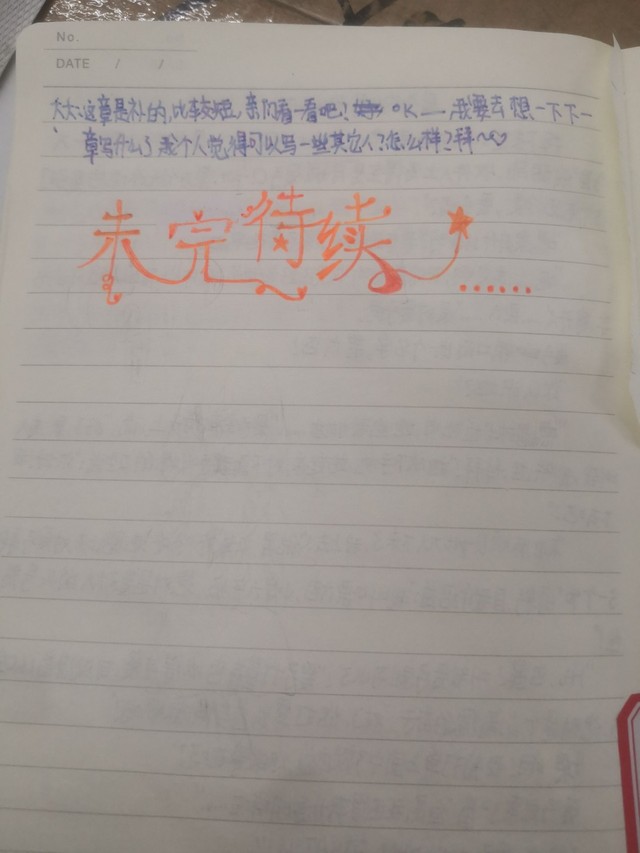 No.
DATE / /
大大:这章是补的,比较短,亲们看一看吧! OK——我要去想一下下一
章写什么了我个人觉得可以写一些其它人?怎么样?拜~
未完待续……